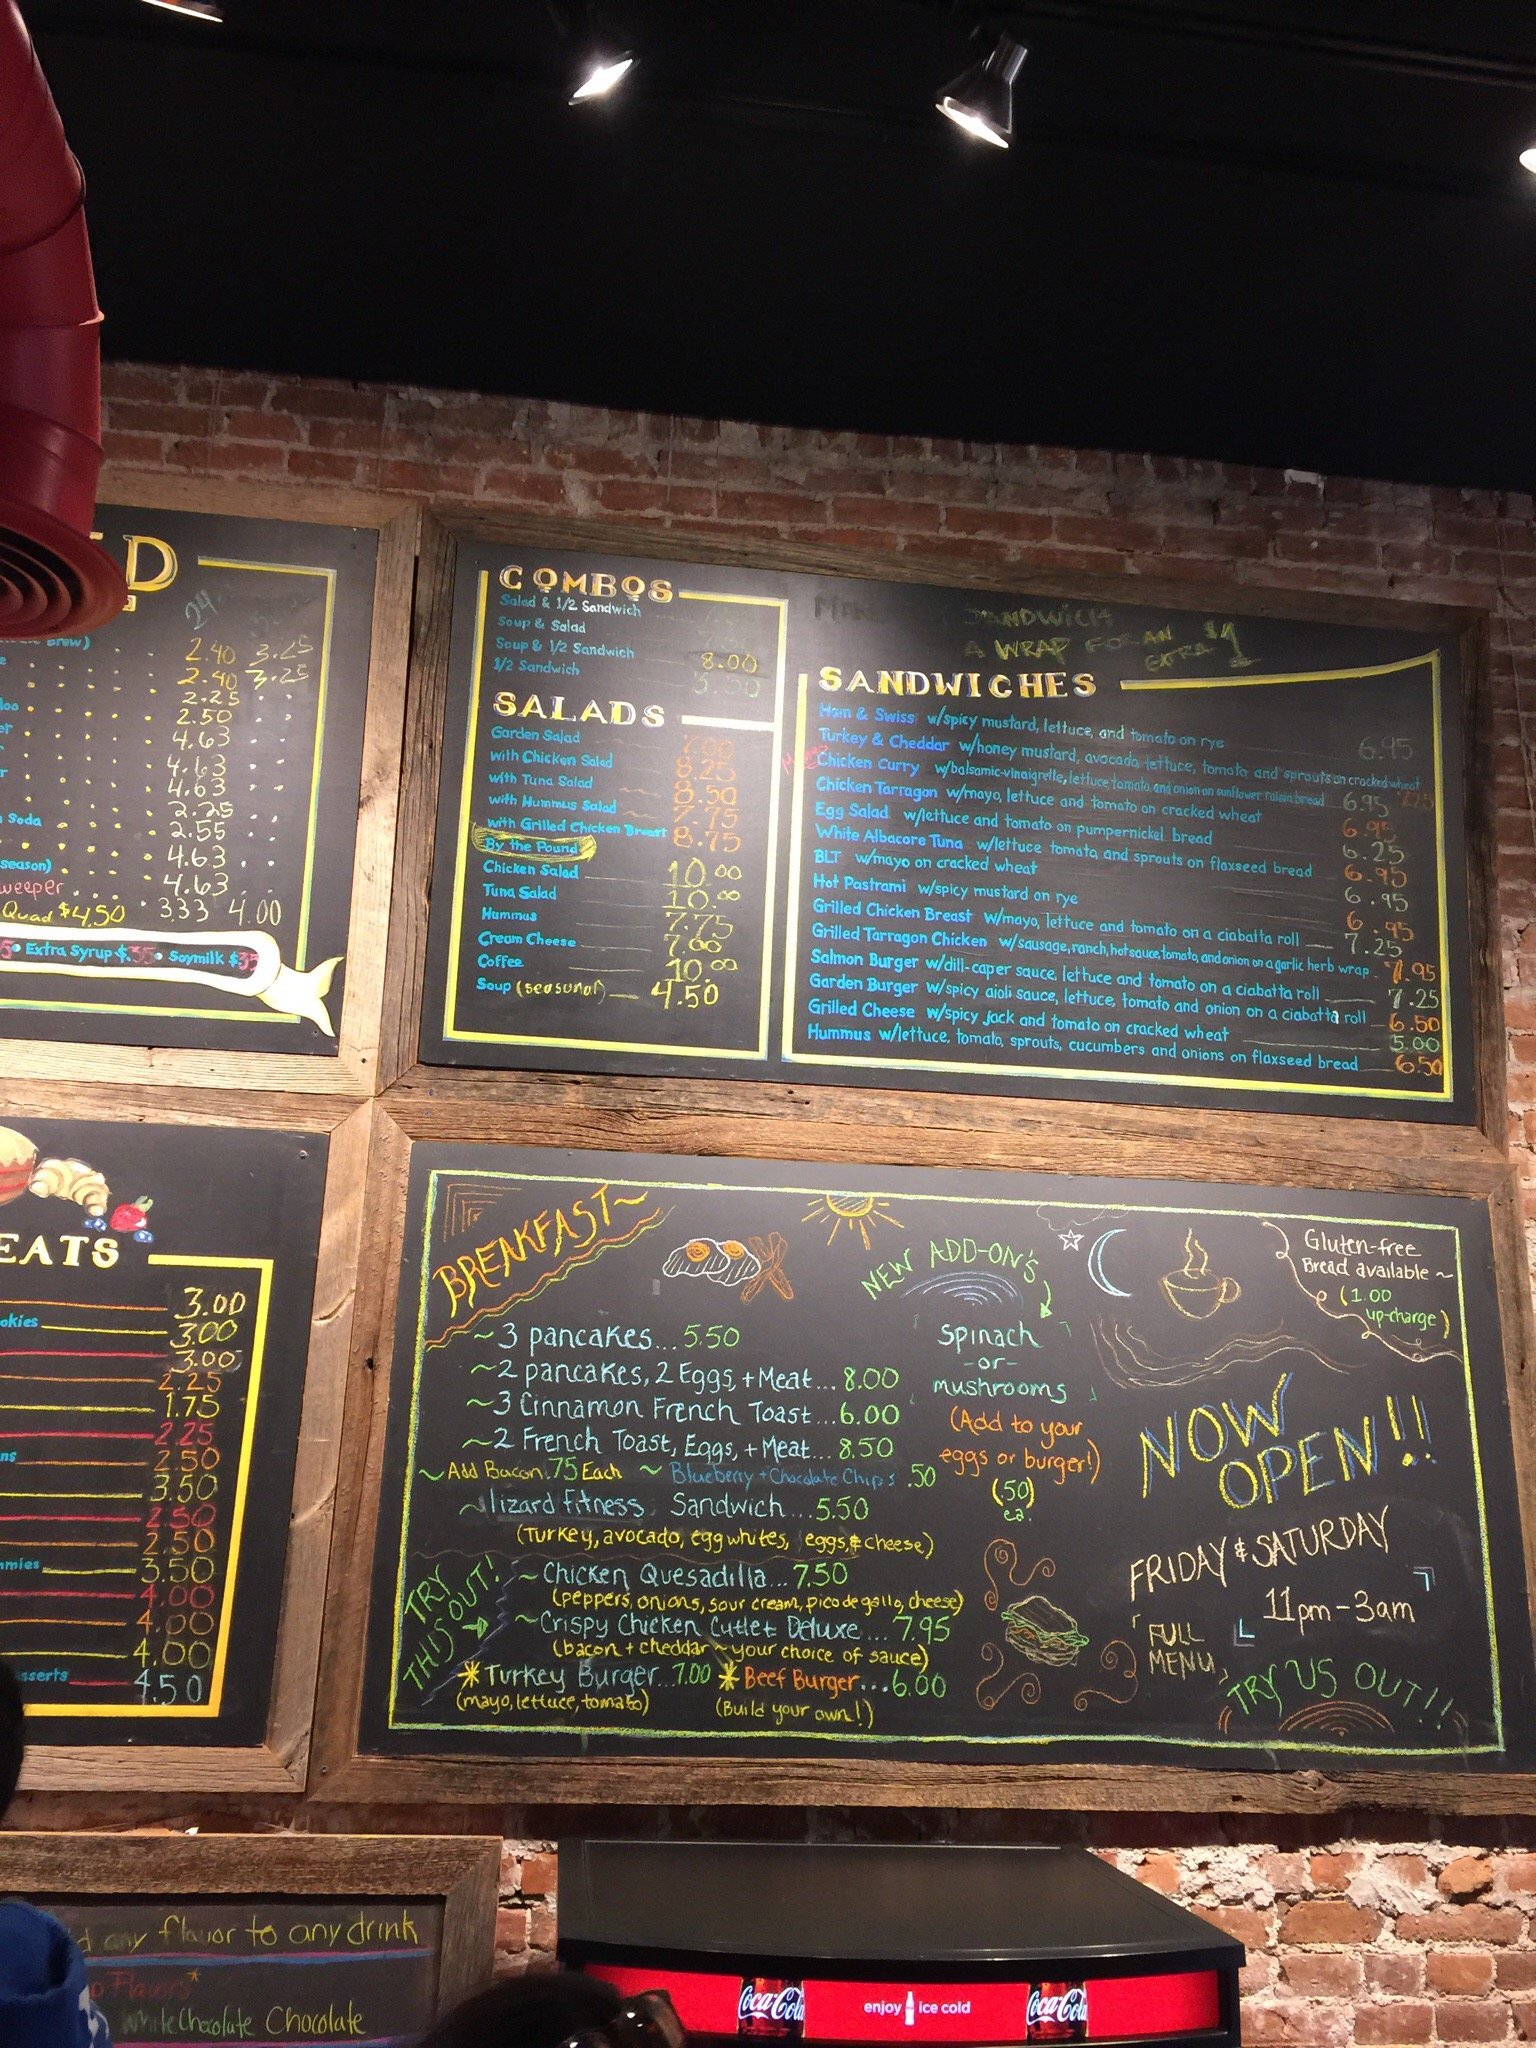 D
24
Brew)
2.40 3.25
2.40 3.25
2.25
2.50
4.63
4.63
4.63
2.25
Soda 2.55
4.63
season) 4.63
weeper 3.33 4.00
Quad $4.50
Extra Syrup $.35 • Soymilk $.35
COMBOS
Salad & 1/2 Sandwich
Soup & Salad
Soup & 1/2 Sandwich 8.00
1/2 Sandwich
SALADS
Garden Salad 7.00
with Chicken Salad 8.25
with Tuna Salad 8.50
with Hummus Salad 7.75
with Grilled Chicken Breast 8.75
By the Pound
Chicken Salad 10.00
Tuna Salad 10.00
Hummus 7.75
Cream Cheese 7.00
Coffee 10.00
Soup (seasonal) 4.50
SANDWICH
A WRAP FOR AN
EXTRA $1
SANDWICHES
Ham & Swiss w/spicy mustard, lettuce, and tomato on rye 6.95
Turkey & Cheddar w/honey mustard, avocado, lettuce, tomato, and sprouts on cracked wheat
Chicken Curry w/balsamic-vinaigrette, lettuce, tomato, and onion on sunflower raisin bread 6.95
Chicken Tarragon w/mayo, lettuce and tomato on cracked wheat 6.95
Egg Salad w/lettuce and tomato on pumpernickel bread 6.25
White Albacore Tuna w/lettuce tomato, and sprouts on flaxseed bread 6.95
BLT w/mayo on cracked wheat 6.95
Hot Pastrami w/spicy mustard on rye 6.95
Grilled Chicken Breast w/mayo, lettuce and tomato on a ciabatta roll 7.25
Grilled Tarragon Chicken w/sausage, ranch, hot sauce, tomato, and onion on a garlic herb wrap 7.95
Salmon Burger w/dill-caper sauce, lettuce and tomato on a ciabatta roll 7.25
Garden Burger w/spicy aioli sauce, lettuce, tomato and onion on a ciabatta roll 6.50
Grilled Cheese w/spicy jack and tomato on cracked wheat 5.00
Hummus w/lettuce, tomato, sprouts, cucumbers and onions on flaxseed bread 6.50
EATS
3.00
okies 3.00
3.00
2.25
1.75
2.25
ns 2.50
3.50
2.50
2.50
mmies 3.50
4.00
4.00
4.00
sserts 4.50
BREAKFAST~
~3 pancakes...5.50
~2 pancakes, 2 Eggs, + Meat...8.00
~3 Cinnamon French Toast...6.00
~2 French Toast, Eggs, + Meat...8.50
~Add Bacon .75 Each ~ Blueberry + Chocolate Chips .50
~lizard fitness Sandwich...5.50
(Turkey, avocado, egg whites, eggs, & cheese)
TRY THIS OUT!
~Chicken Quesadilla...7.50
(peppers, onions, sour cream, pico de gallo, cheese)
~Crispy Chicken Cutlet Deluxe...7.95
(bacon + cheddar ~ your choice of sauce)
Turkey Burger...7.00 Beef Burger...6.00
(mayo, lettuce, tomato) (Build your own!)
NEW ADD-ON'S
Spinach
-or-
mushrooms
(Add to your
eggs or burger!)
(.50)
ea.
Gluten-free
Bread available ~
(1.00
up-charge)
NOW
OPEN!!
FRIDAY & SATURDAY
11pm - 3am
FULL
MENU
TRY US OUT!!
d any flavor to any drink
Flavors*
White Chocolate Chocolate
Coca-Cola enjoy ice cold Coca-Cola